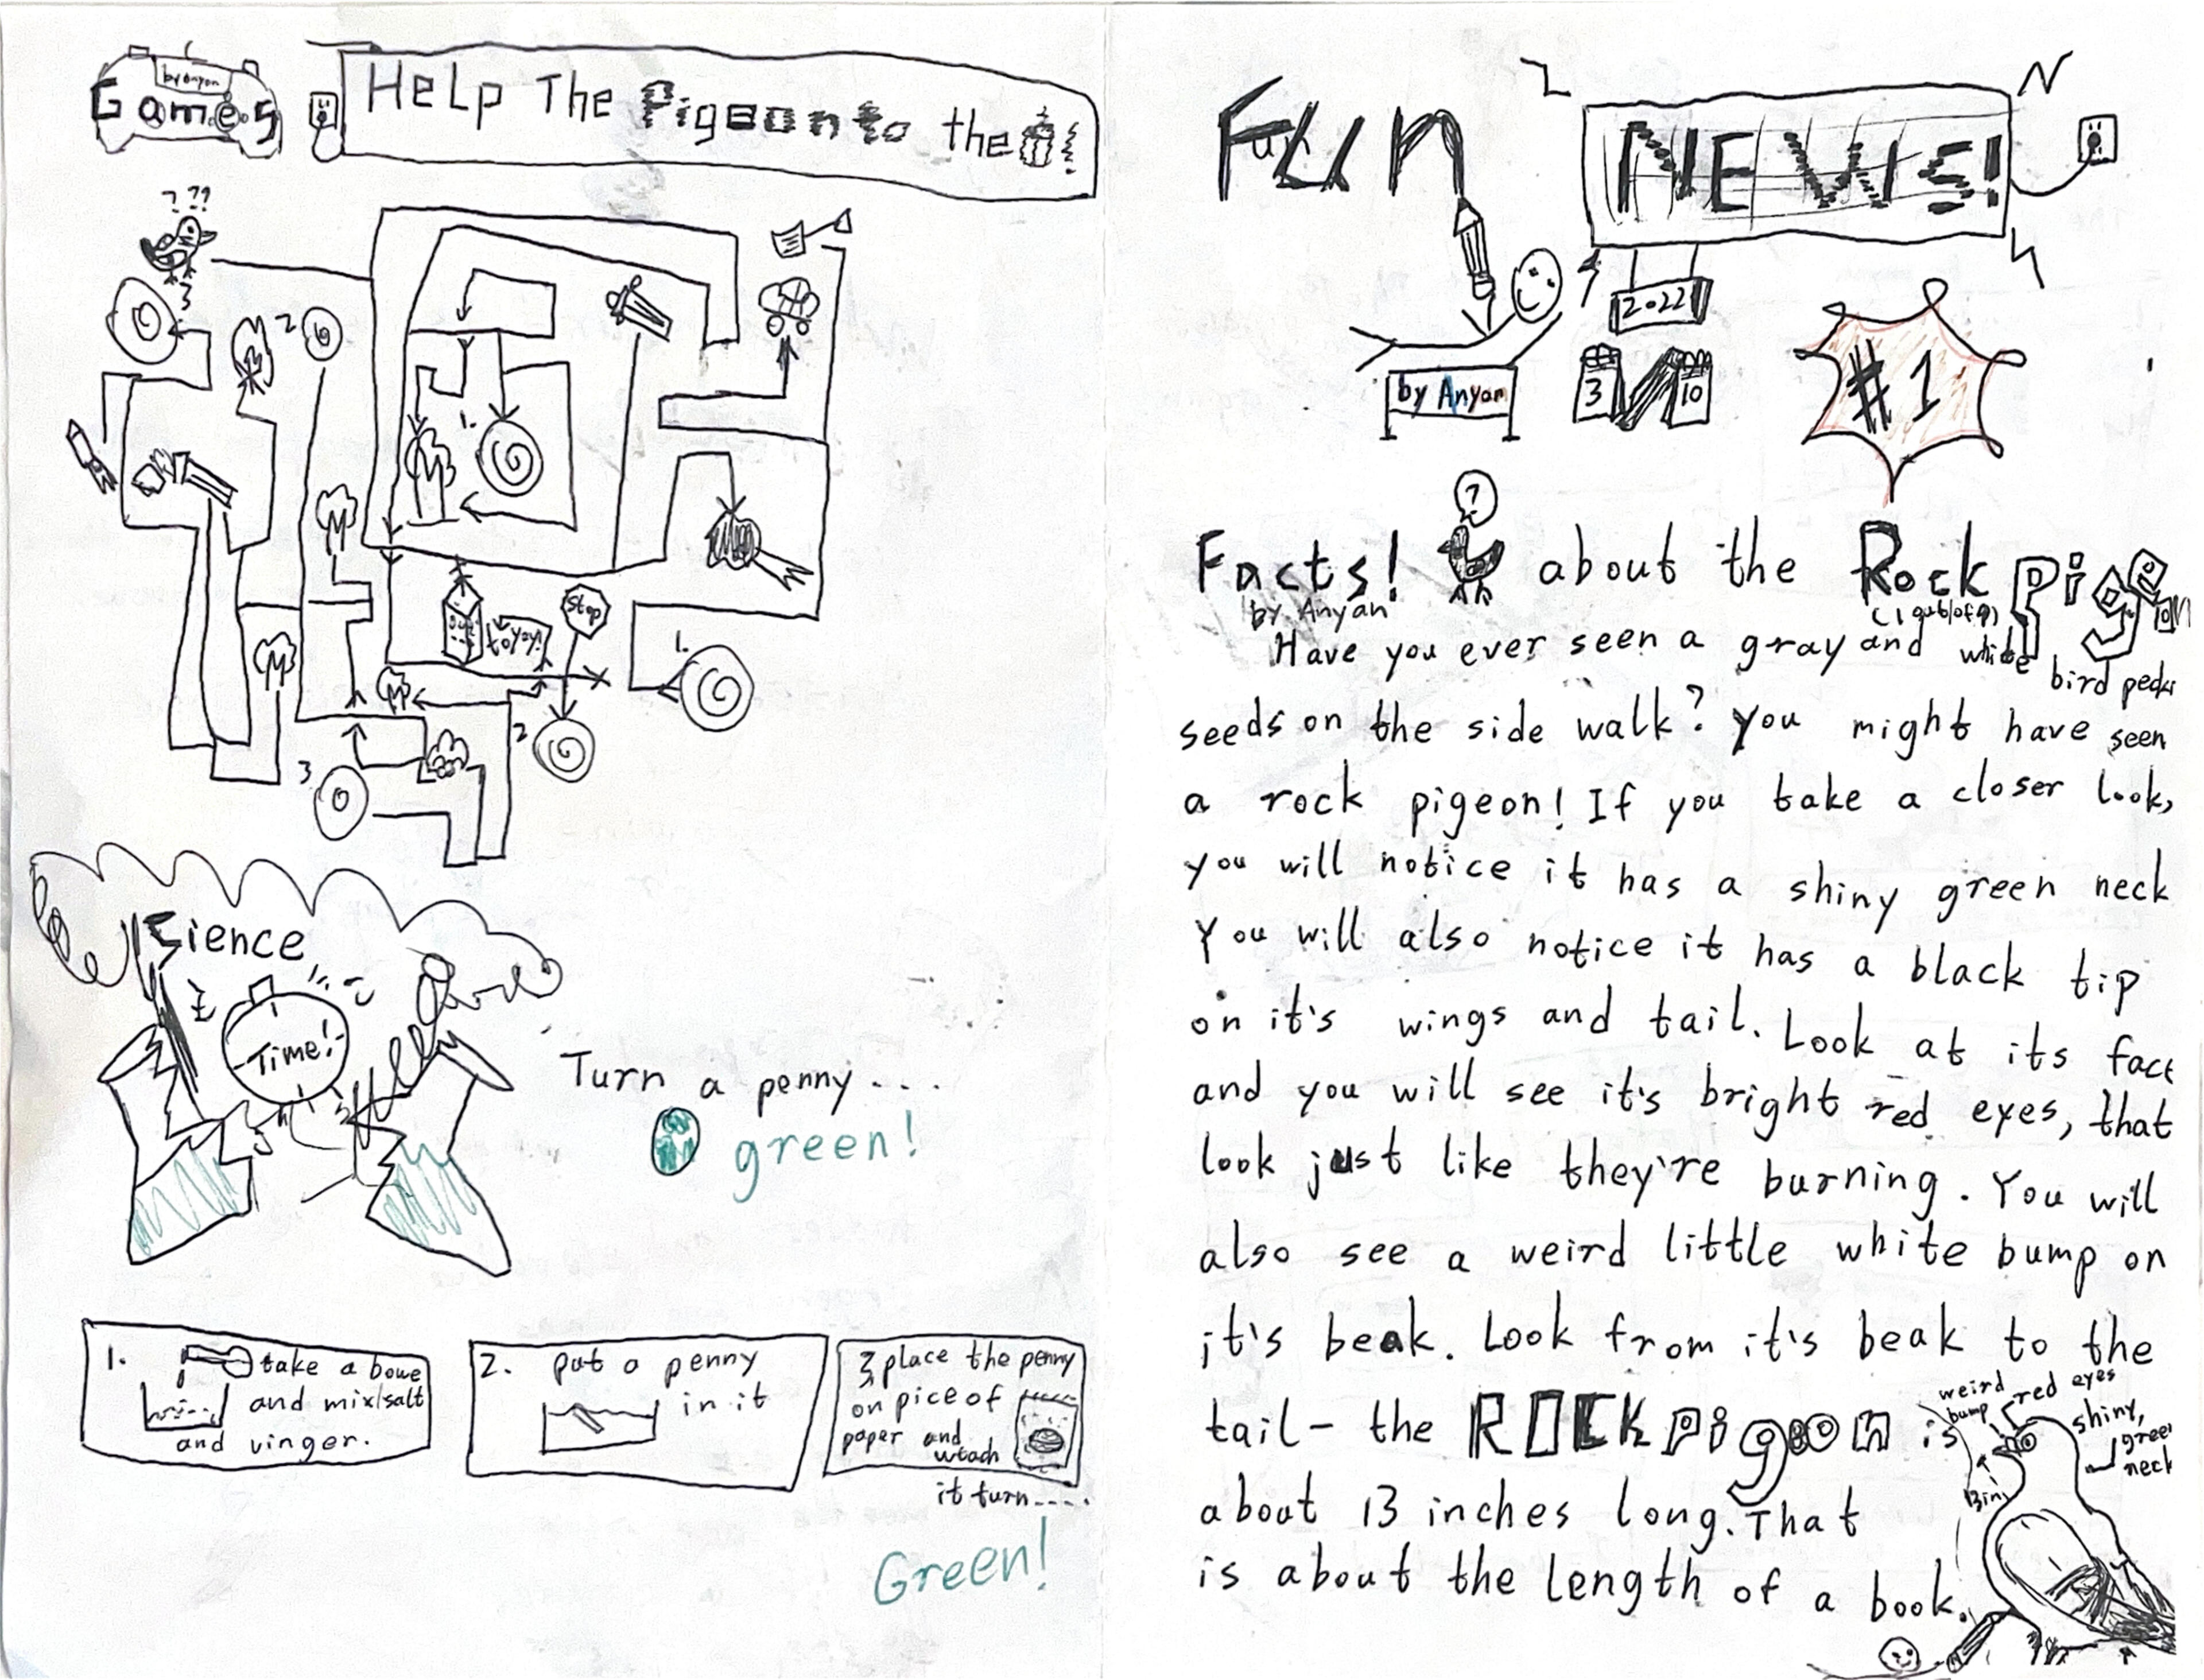 by Anyan
Games
Help The Pigeon to the !
? ??
2
1.
Stop
to yoy!
1.
2
3
Sience
Time!
Turn a penny....
green!
1. take a bowe
and mix/salt
and vinger.
2. put a penny
in it
3 place the penny
on pice of
paper and
wtach
it turn....
Green!
Fun NEWS!
by Anyan
2022
3/10
#1
?
Facts! about the Rock Pigeon
by Anyan
Have you ever seen a gray and white bird peck
seeds on the side walk? You might have seen
a rock pigeon! If you take a closer look,
you will notice it has a shiny green neck
You will also notice it has a black tip
on it's wings and tail. Look at its face
and you will see it's bright red eyes, that
look just like they're burning. You will
also see a weird little white bump on
it's beak. Look from it's beak to the
tail- the ROCK pigeon is
about 13 inches long. That
is about the length of a book.
weird
bump
red eyes
shiny,
green
neck
13in